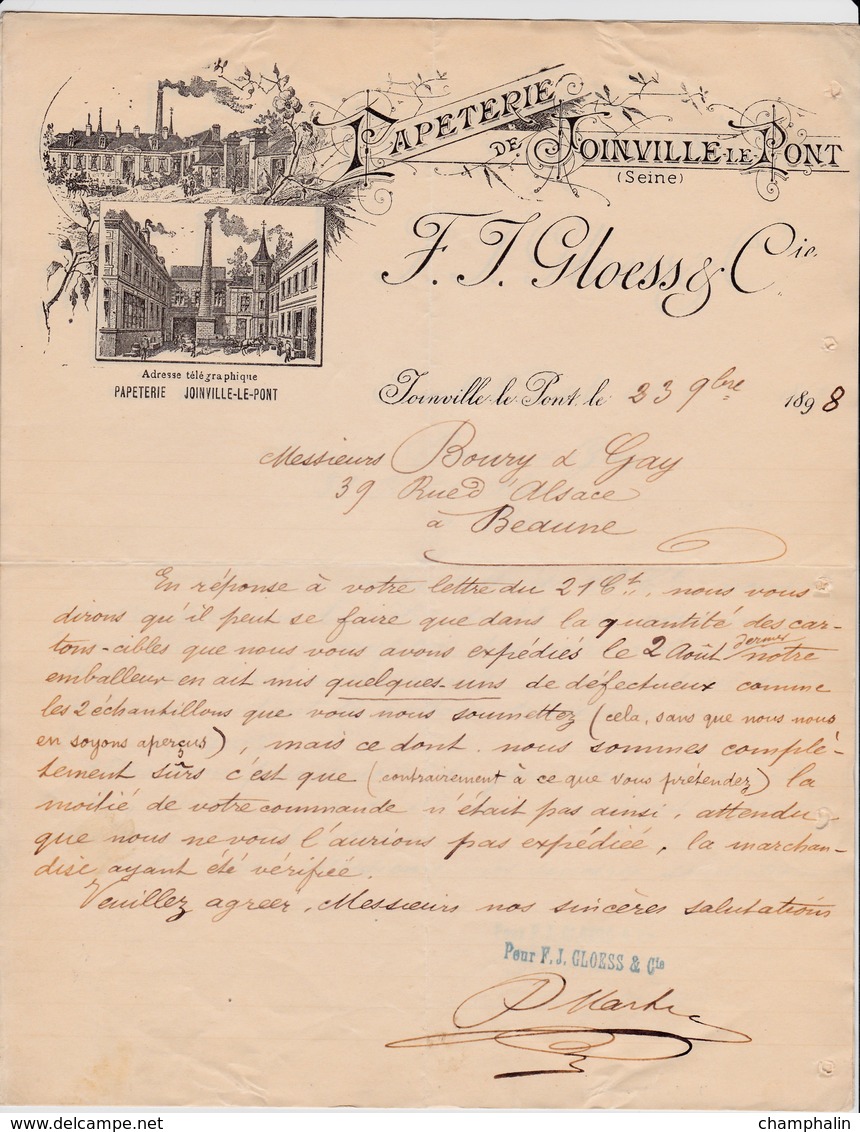 PAPETERIE
DE JOINVILLE-LE-PONT
(Seine)
F. J. Gloess & Cie.
Adresse télégraphique
PAPETERIE JOINVILLE-LE-PONT
Joinville-le-Pont, le 23 9bre 1898
Messieurs Boury & Gay
39 Rue d'Alsace
à Beaune
En réponse à votre lettre du 21 Ct. nous vous
dirons qu'il peut se faire que dans la quantité des car-
tons-cibles que nous vous avons expédiés le 2 Août dernier notre
emballeur en ait mis quelques-uns de défectueux comme
les 2 échantillons que vous nous soumettez (cela, sans que nous nous
en soyons aperçus), mais ce dont nous sommes complè-
tement sûrs c'est que (contrairement à ce que vous prétendez) la
moitié de votre commande n'était pas ainsi, attendu
que nous ne vous l'aurions pas expédiée, la marchan-
dise ayant été vérifiée.
Veuillez agréer, Messieurs nos sincères salutations
Pour F. J. GLOESS & Cie
champhalin